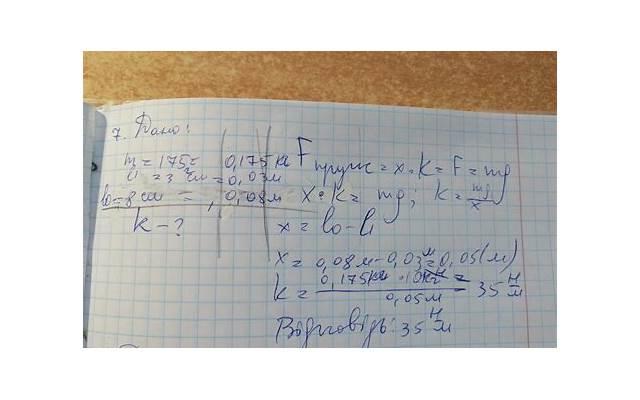 7. Дано:
m = 175г = 0,175кг
l1 = 3 см = 0,03м
l0 = 8 см = 0,08м
k - ?
Fпруж = x · k = F = mg
x · k = mg; k = mg/x
x = l0 - l1
x = 0,08м - 0,03м = 0,05(м)
k = 0,175кг · 10 / 0,05м = 35 Н/м
Відповідь: 35 Н/м